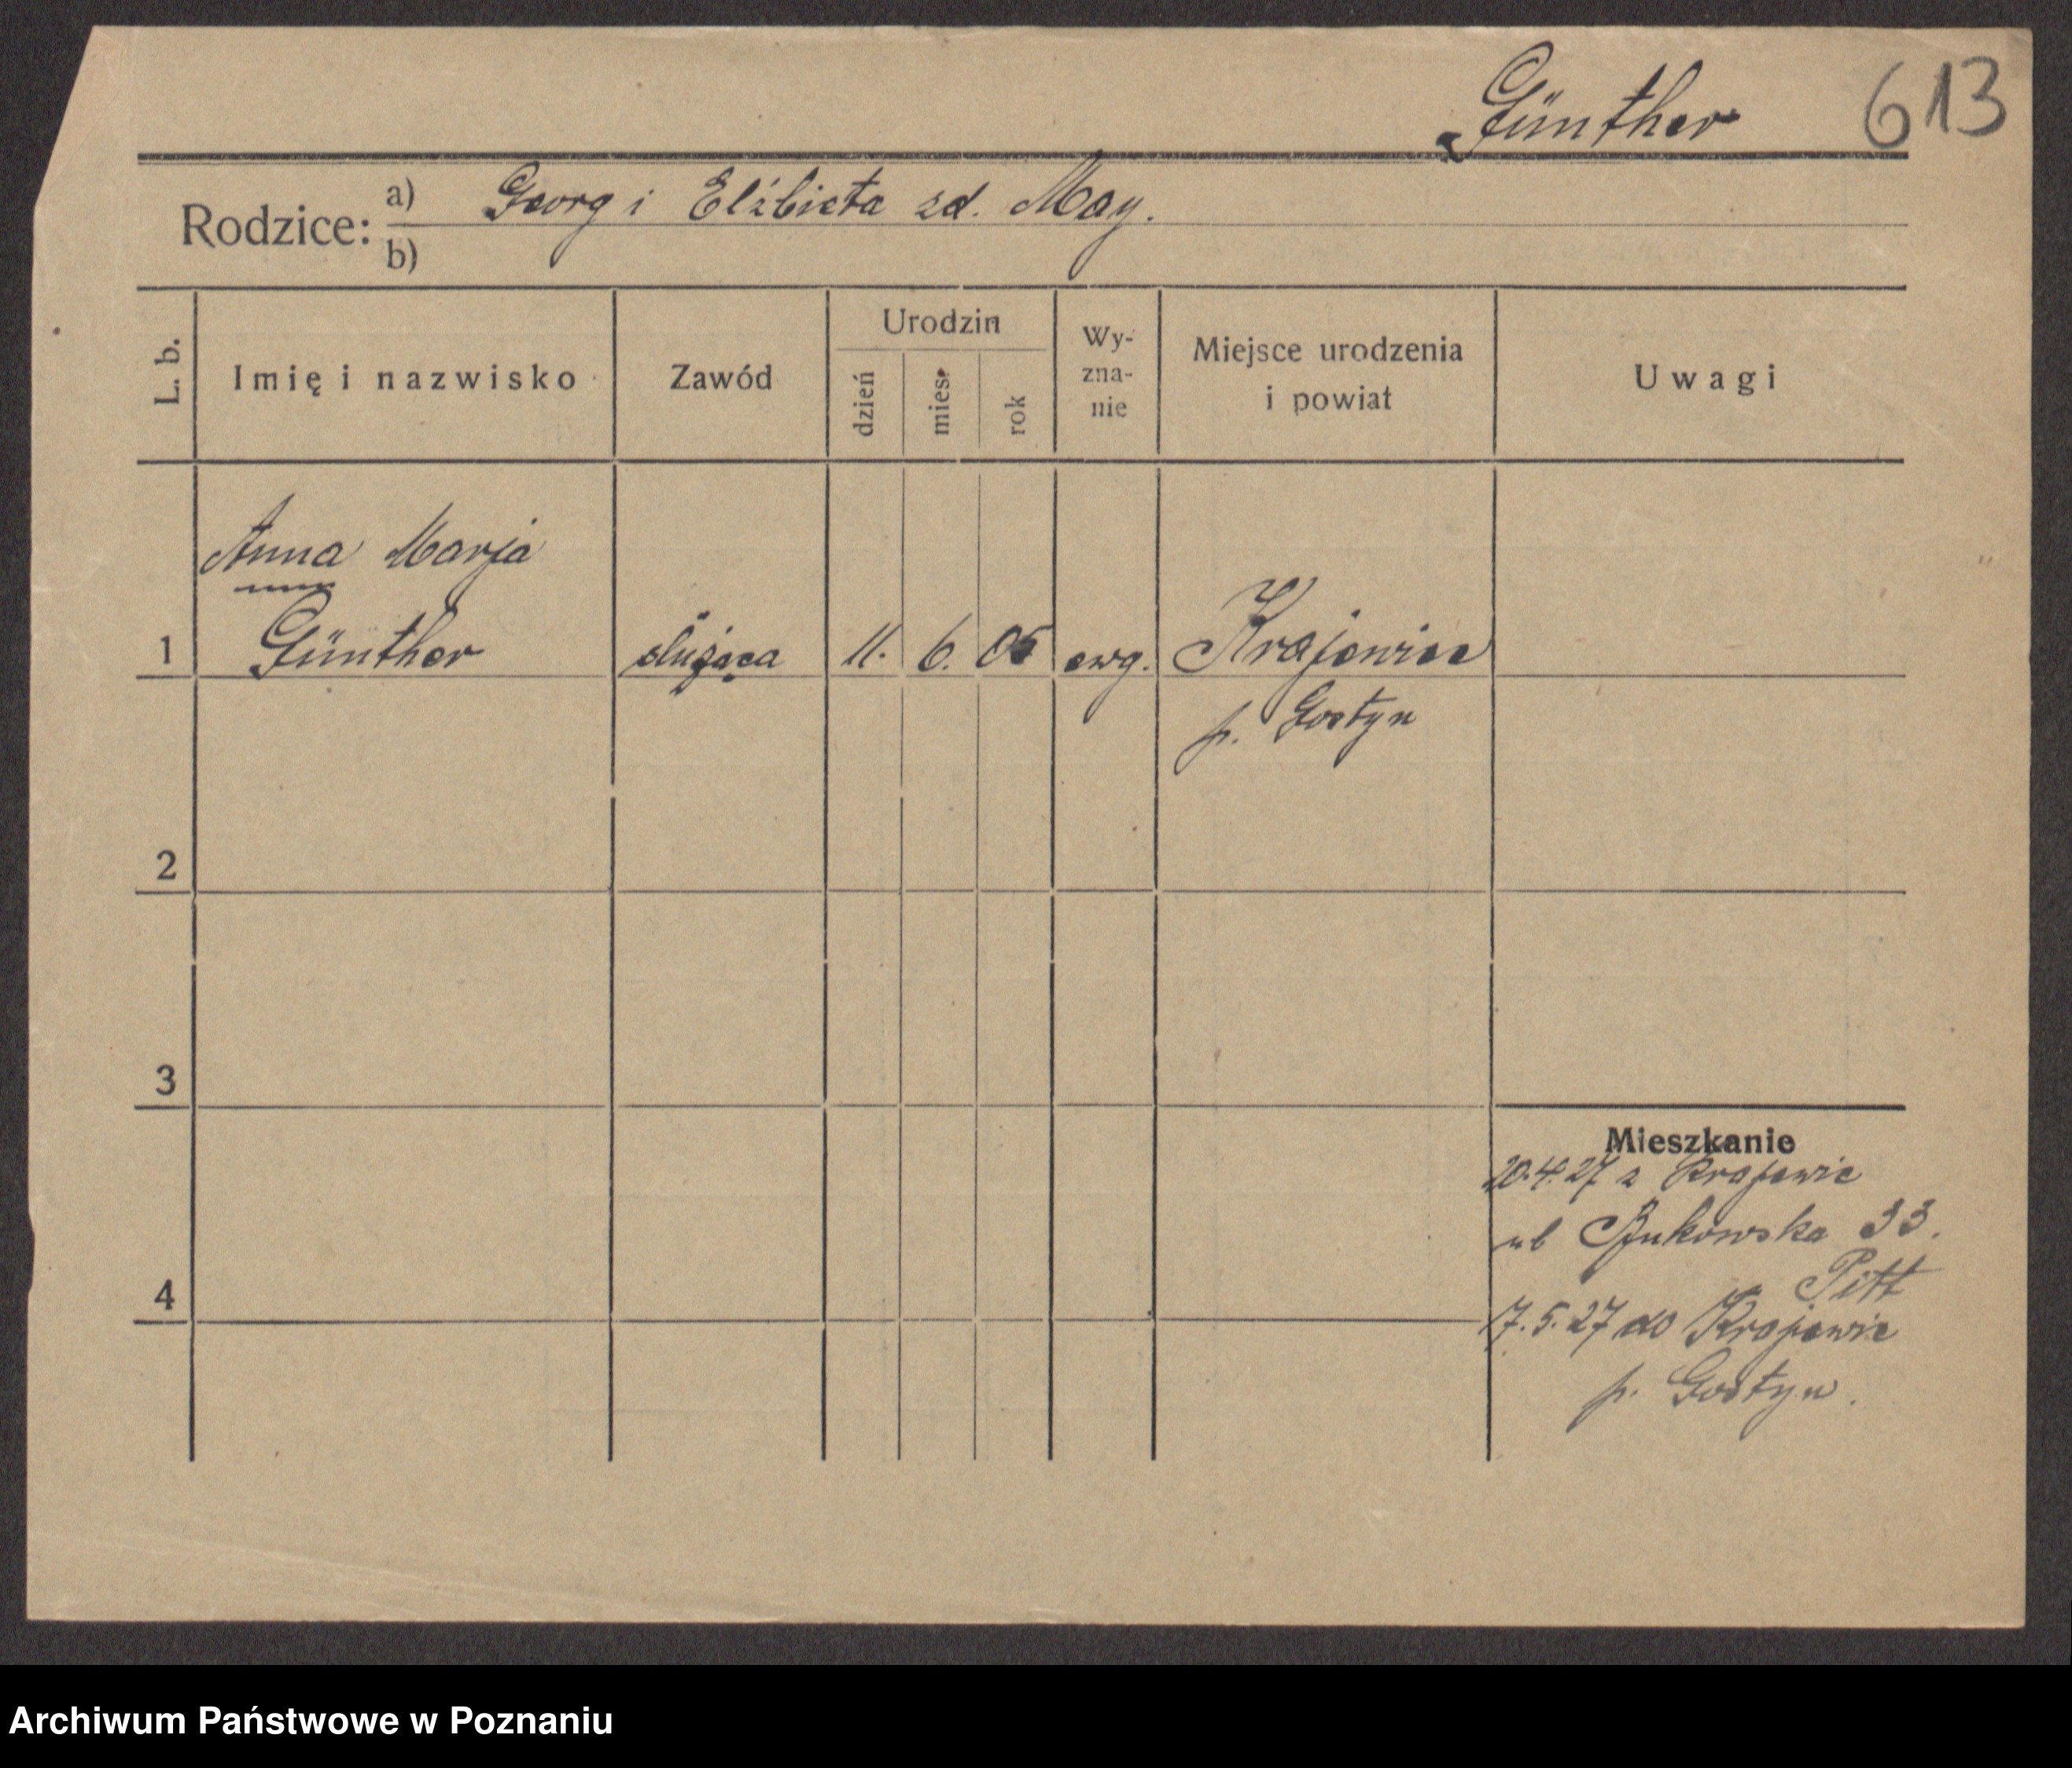 Günther 613
Rodzice: a) Georg i Elżbieta zd. May.
b)
L. b. Imię i nazwisko Zawód Urodzin dzień mies. rok Wy-zna-nie Miejsce urodzenia i powiat Uwagi
Anna Marja
1 Günther służąca 11. 6. 05 ewg. Krajewice
p. Gostyn
2
3
Mieszkanie
20.4.27 z Krajewic
ul Bukowska 33.
Pitt
4
17.5.27 do Krajewic
p. Gostyn.
Archiwum Państwowe w Poznaniu